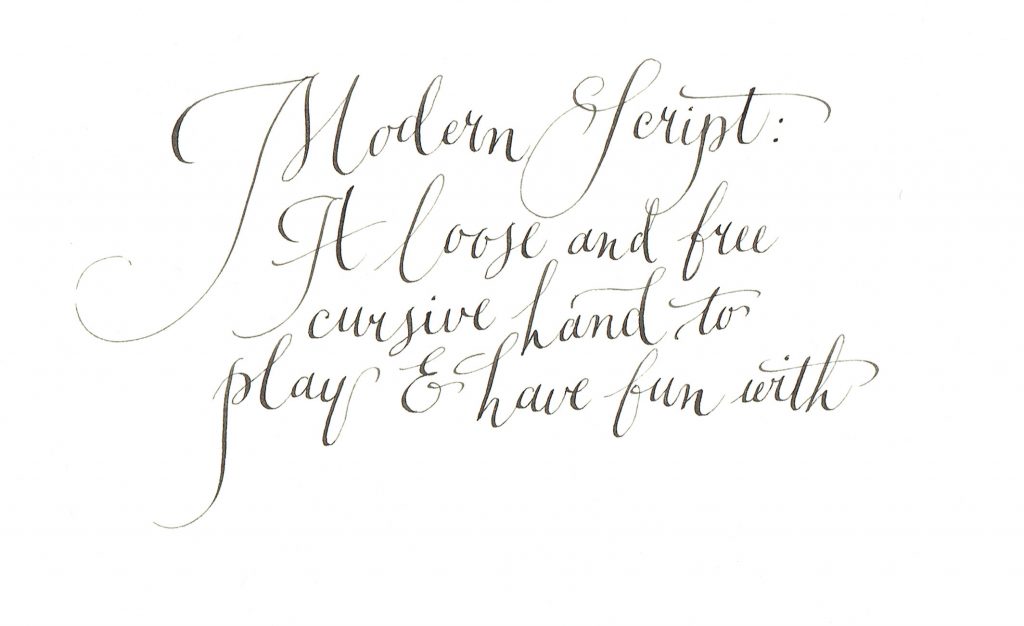 Modern Script:
A loose and free
cursive hand to
play & have fun with